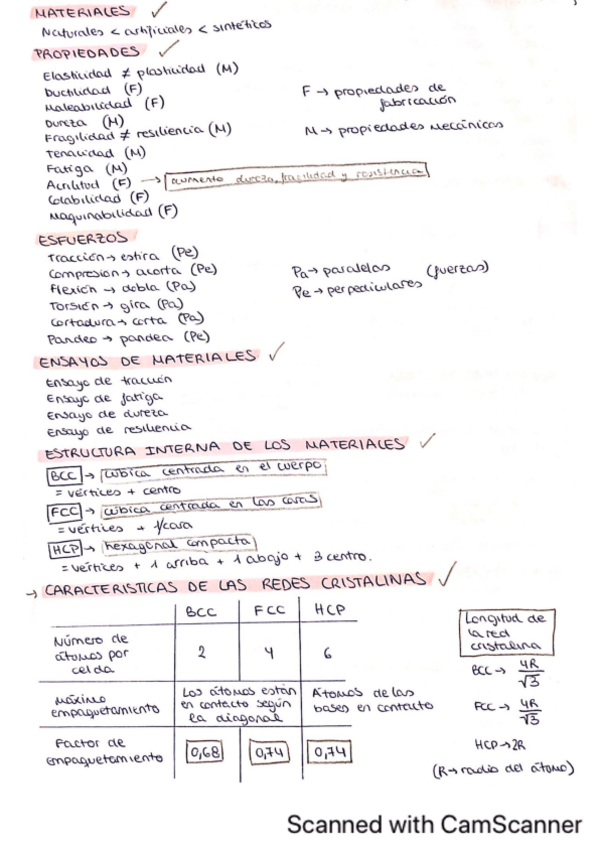 MATERIALES ✓
Naturales < artificiales < sintéticos
PROPIEDADES ✓
Elasticidad ≠ plasticidad (M)
Ductilidad (F)
Maleabilidad (F)
Dureza (M)
Fragilidad ≠ resiliencia (M)
Tenacidad (M)
Fatiga (M)
Acrilitud (F) → aumento dureza, fragilidad y resistencia
Colabilidad (F)
Maquinabilidad (F)
F → propiedades de
fabricación
M → propiedades Mecánicas
ESFUERZOS
Tracción → estira (Pe)
Compresión → acorta (Pe)
Flexión → dobla (Pa)
Torsión → gira (Pa)
Cortadura → corta (Pa)
Pandeo → pandea (Pe)
Pa → paralelas (fuerzas)
Pe → perpediculares
ENSAYOS DE MATERIALES ✓
Ensayo de tracción
Ensayo de fatiga
Ensayo de dureza
Ensayo de resiliencia
ESTRUCTURA INTERNA DE LOS MATERIALES ✓
BCC → cúbica centrada en el cuerpo
= vértices + centro
FCC → cúbica centrada en las caras
= vértices + 1/cara
HCP → hexagonal compacta
= vértices + 1 arriba + 1 abajo + 3 centro.
→ CARACTERISTICAS DE LAS REDES CRISTALINAS ✓
BCC FCC HCP
Número de
átomos por
celda
2 4 6
Máximo
empaquetamiento
Los átomos están
en contacto según
la diagonal
Átomos de las
bases en contacto
Factor de
empaquetamiento
0,68 0,74 0,74
Longitud de
la red
cristalina
BCC → 4R/√3
FCC → 4R/√3
HCP → 2R
(R → radio del átomo)
Scanned with CamScanner